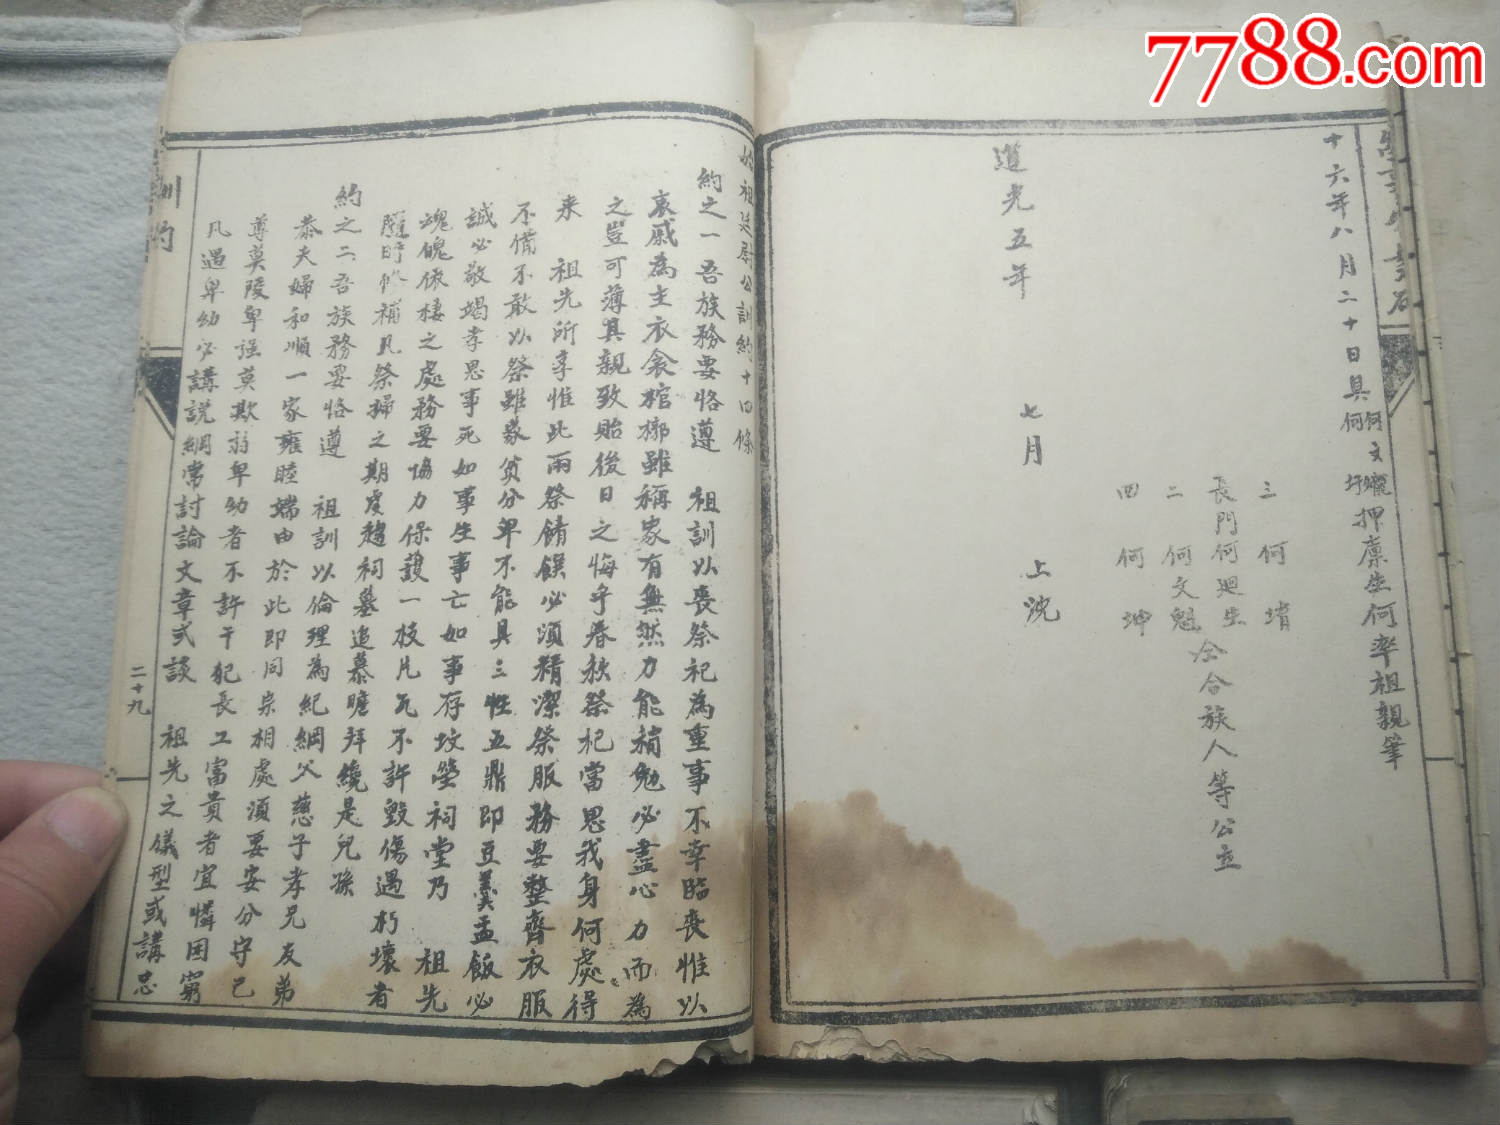 7788.com
十六年八月二十日具何文爔何圩押廪生何率祖親筆
三 何堉
長門何廻生
二 何文魁
四 何坤
仝合族人等公立
道光五年 七月 上浣
始祖廷尉公訓約十四條
約之一吾族務要恪遵 祖訓以喪祭祀為重事不幸臨喪惟以
哀戚為主衣衾棺槨雖稱家有無然力能稍勉必盡心力而為
之豈可薄其親致貽後日之悔乎春秋祭杞當思我身何處得
来 祖先所享惟此兩祭餚饌必須精潔祭服務要整齊衣服
不備不敢以祭雖衆貨分卑不能具三牲五鼎即豆羹盂飯必
誠必敬竭孝思事死如事生事亡如事存坟塋祠堂乃 祖先
魂魄依棲之處務要協力保護一枝片瓦不許毀傷遇朽壞者
隨時修補凡祭掃之期度趨祠墓追慕瞻拜纔是兒孫
約之二吾族務要恪遵 祖訓以倫理為紀綱父慈子孝兄友弟
恭夫婦和順一家雍睦端由於此即同宗相處須要安分守己
尊莫陵卑强莫欺弱卑幼者不許干犯長上富貴者宜憐困窮
凡遇卑幼必講説綱常討論文章式談 祖先之儀型或講忠
訓約
二十九